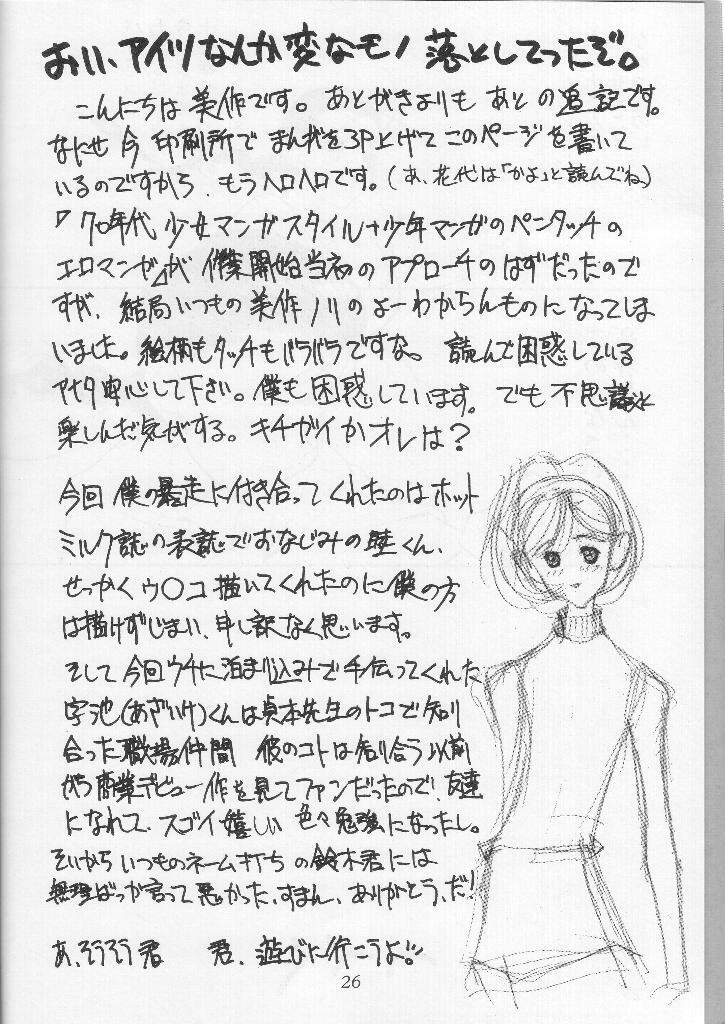 おいい、アイツなんか変なモノ落としてったぞ。
こんにちは美作です。あとがきよりもあとの追記です。
なにせ今印刷所でまんがを3P上げてこのページを書いて
いるのですから、もうヘロヘロです。(あ、花代は「かよ」と読んでね。)
『70年代少女マンガスタイル+少年マンガのペンタッチの
エロマンガ』が作業開始当初のアプローチのはずだったので
すが、結局いつもの美作ノリのよーわからんものになってしま
いました。絵柄もタッチもバラバラですな。読んで困惑している
アナタ安心して下さい。僕も困惑しています。でも不思議と
楽しんだ気がする。キチガイかオレは?
今回僕の暴走に付き合ってくれたのはホット
ミルク誌の表誌でおなじみの睦くん、
せっかくウ〇コ描いてくれたのに僕の方
は描けずじまい、申し訳なく思います。
そして今回ウチに泊まり込みで手伝ってくれた
字池(あざいけ)くんは貞本先生のトコで知り
合った職場仲間 彼のコトは知り合う以前
から商業デビュー作を見てファンだったので、友達
になれて、スゴイ嬉しい 色々勉強になったし。
そいからいつものネーム打ちの鈴木君には
無理ばっか言って悪かった、すまん、ありがとう、だ!
あ、そうそう君 君、遊びに行こうよ!!
26